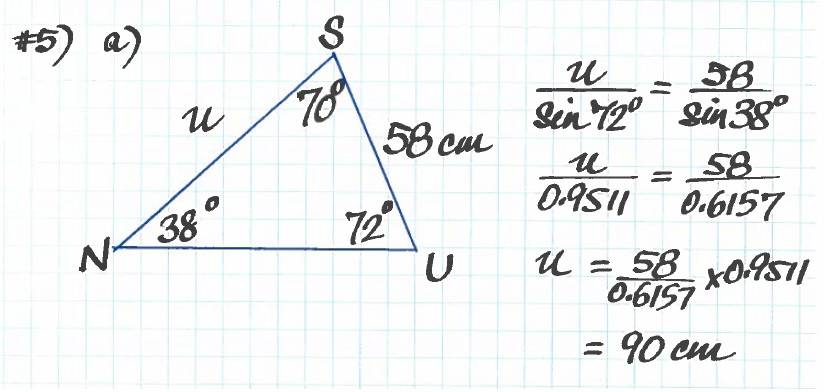 #5) a)
S
u
70°
58 cm
38°
72°
N
U
u/sin 72° = 58/sin 38°
u/0.9511 = 58/0.6157
u = 58/0.6157 × 0.9511
= 90 cm